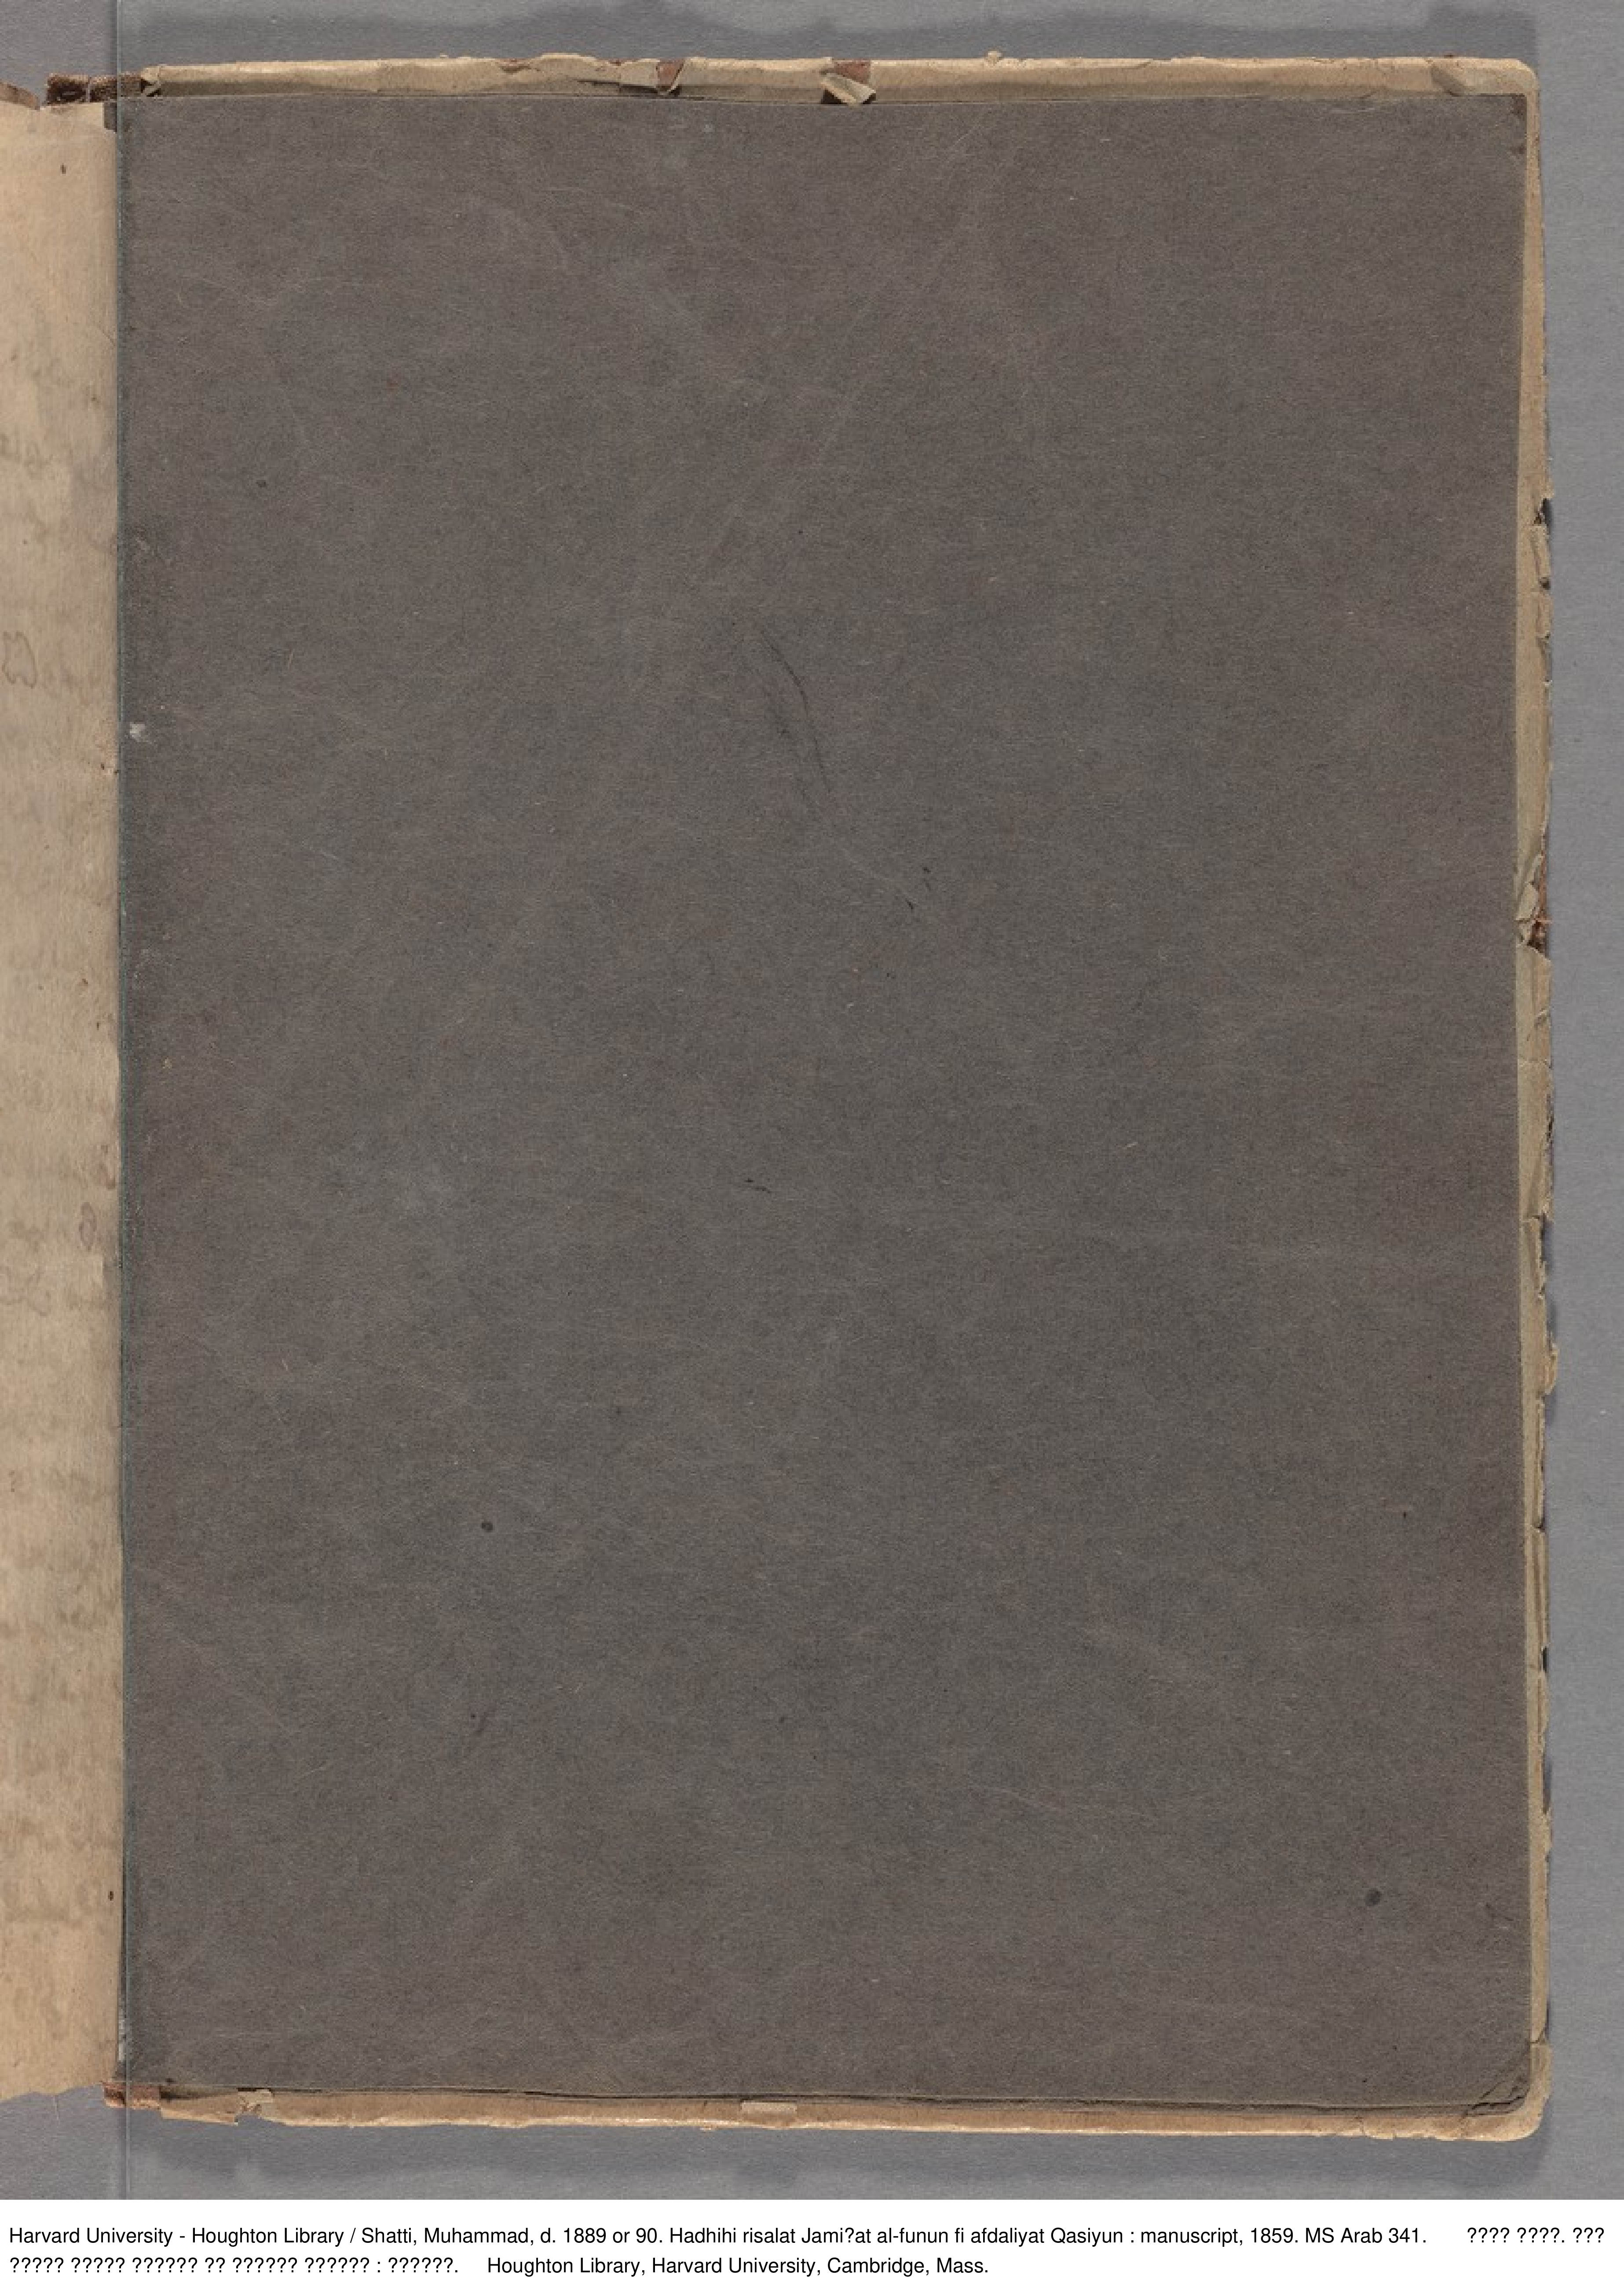 Harvard University - Houghton Library / Shatti, Muhammad, d. 1889 or 90. Hadhihi risalat Jami?at al-funun fi afdaliyat Qasiyun : manuscript, 1859. MS Arab 341. ???? ????. ???
????? ????? ?????? ?? ?????? ?????? : ??????. Houghton Library, Harvard University, Cambridge, Mass.